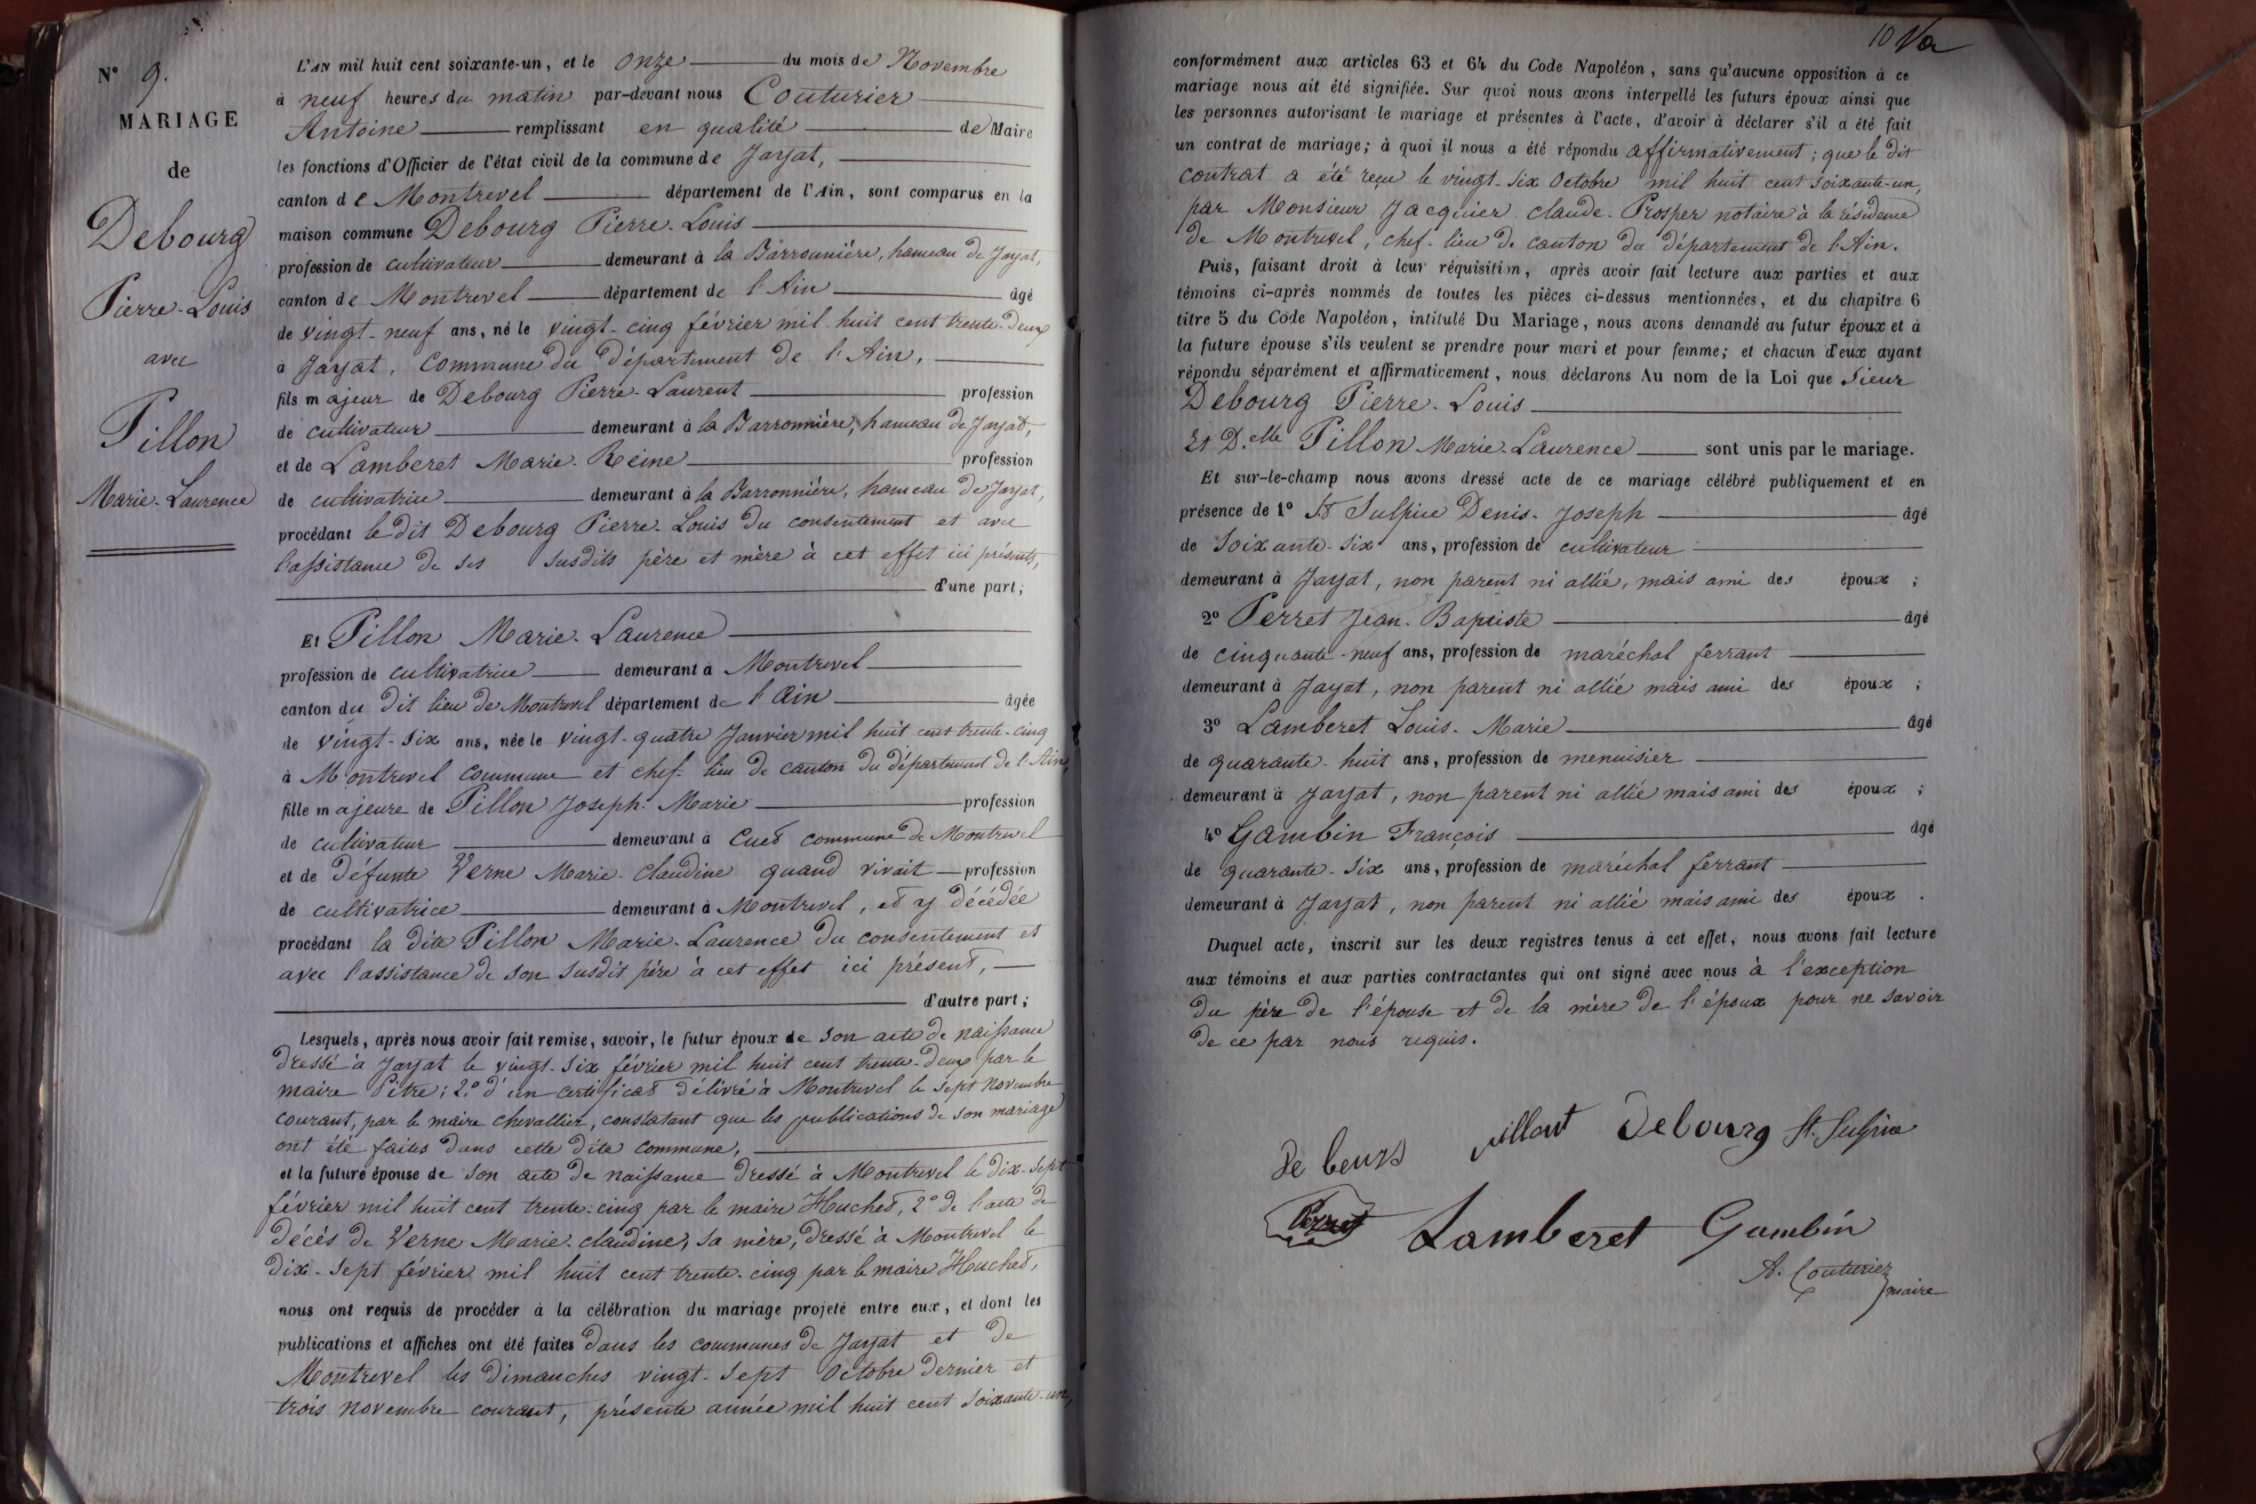 N° 9.
MARIAGE
de
Debourg
Pierre-Louis
avec
Pillon
Marie-Laurence
L'AN mil huit cent soixante-un, et le onze du mois de Novembre
à neuf heures du matin par-devant nous Couturier
Antoine remplissant en qualité de Maire
les fonctions d'Officier de l'état civil de la commune de Jayat,
canton de Montrevel département de l'Ain, sont comparus en la
maison commune Debourg Pierre-Louis
profession de cultivateur demeurant à la Barronnière, hameau de Jayat,
canton de Montrevel département de l'Ain âgé
de vingt-neuf ans, né le vingt-cinq février mil huit cent trente-deux
à Jayat, Commune du département de l'Ain,
fils majeur de Debourg Pierre-Laurent profession
de cultivateur demeurant à la Barronnière, hameau de Jayat,
et de Lamberet Marie-Reine profession
de cultivatrice demeurant à la Barronnière, hameau de Jayat,
procédant le dit Debourg Pierre-Louis du consentement et avec
l'assistance de ses susdits père et mère à cet effet ici présents,
d'une part;
Et Pillon Marie-Laurence
profession de cultivatrice demeurant à Montrevel
canton du dit lieu de Montrevel département de l'Ain âgée
de vingt-six ans, née le vingt-quatre Janvier mil huit cent trente-cinq
à Montrevel commune et chef-lieu de canton du département de l'Ain,
fille majeure de Pillon Joseph-Marie profession
de cultivateur demeurant à Cuet commune de Montrevel
et de défunte Verne Marie-Claudine quand vivait profession
de cultivatrice demeurant à Montrevel, et y décédée
procédant la dite Pillon Marie-Laurence du consentement et
avec l'assistance de son susdit père à cet effet ici présent,
d'autre part;
Lesquels, après nous avoir fait remise, savoir, le futur époux de son acte de naissance
dressé à Jayat le vingt-six février mil huit cent trente-deux par le
maire Pitre; 2.° d'un certificat délivré à Montrevel le sept novembre
courant, par le maire Chevallier, constatant que les publications de son mariage
ont été faites dans cette dite commune,
et la future épouse de son acte de naissance dressé à Montrevel le dix-sept
février mil huit cent trente-cinq par le maire Huchet, 2° de l'acte de
décès de Verne Marie-claudine, sa mère, dressé à Montrevel le
dix-sept février mil huit cent trente-cinq par le maire Huchet,
nous ont requis de procéder à la célébration du mariage projeté entre eux, et dont les
publications et affiches ont été faites dans les communes de Jayat et de
Montrevel les dimanches vingt-sept octobre dernier et
trois novembre courant, présente année mil huit cent soixante-un,
10
conformément aux articles 63 et 64 du Code Napoléon, sans qu'aucune opposition à ce
mariage nous ait été signifiée. Sur quoi nous avons interpellé les futurs époux ainsi que
les personnes autorisant le mariage et présentes à l'acte, d'avoir à déclarer s'il a été fait
un contrat de mariage; à quoi il nous a été répondu affirmativement; que le dit
contrat a été reçu le vingt-six Octobre mil huit cent soixante-un,
par Monsieur Jacquier claude-Prosper notaire à la résidence
de Montrevel, chef-lieu de canton du département de l'Ain.
Puis, faisant droit à leur réquisition, après avoir fait lecture aux parties et aux
témoins ci-après nommés de toutes les pièces ci-dessus mentionnées, et du chapitre 6
titre 5 du Code Napoléon, intitulé Du Mariage, nous avons demandé au futur époux et à
la future épouse s'ils veulent se prendre pour mari et pour femme; et chacun d'eux ayant
répondu séparément et affirmativement, nous déclarons Au nom de la Loi que Sieur
Debourg Pierre-Louis
Et D.elle Pillon Marie-Laurence sont unis par le mariage.
Et sur-le-champ nous avons dressé acte de ce mariage célébré publiquement et en
présence de 1° St Sulpice Denis-Joseph âgé
de soixante-six ans, profession de cultivateur
demeurant à Jayat, non parent ni allié, mais ami des époux ;
2° Perret Jean-Baptiste âgé
de cinquante-neuf ans, profession de maréchal ferrant
demeurant à Jayat, non parent ni allié mais ami des époux ;
3° Lamberet Louis-Marie âgé
de quarante-huit ans, profession de menuisier
demeurant à Jayat, non parent ni allié mais ami des époux ;
4° Gambin François âgé
de quarante-six ans, profession de maréchal ferrant
demeurant à Jayat, non parent ni allié mais ami des époux .
Duquel acte, inscrit sur les deux registres tenus à cet effet, nous avons fait lecture
aux témoins et aux parties contractantes qui ont signé avec nous à l'exception
du père de l'épouse et de la mère de l'époux pour ne savoir
de ce par nous requis.
pillont Debourg St. Sulpice
Perret Lamberet Gambin
A. Couturier
maire